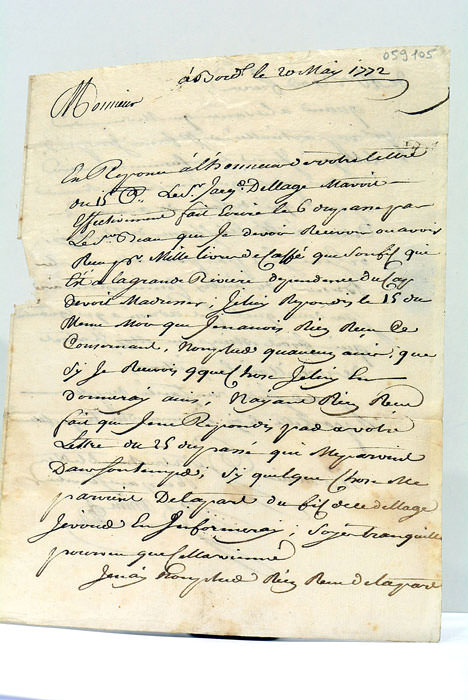 059105
à Bord. le 20 May 1772
Monsieur
En Reponce à l'honneur de votre lettre
du 15 Le Sr. Jacq. Dellage Mavoit
Effectivement fait Ecrire le 6 du passe par
Le Sr. que Je devoir Recevoir ou avoir
Reçu pr. Mille livres de Caffé que son fils qui
Est a la grande Riviere dependence du Cap
devoit Madresser, Je luy Repondis le 15 du
Meme Mois que Jenavois Rien Reçu Ce
Concernant, Nonplus quaucun avis, que
Sy Je Recevois qque Chose Je luy En
Donneray avis, Nayant Rien Reçu
fait que Jene Repondis pas a votre
Lettre du 25 du passé que Mesparvint
Dans son temps, Sy quelque Chose Me
parvient De la part du fils de Dellage
Je vous En Informeray, Soyes tranquille
pour veu que Cella vienne
Jenay Nonplus Rien Reçu de la part